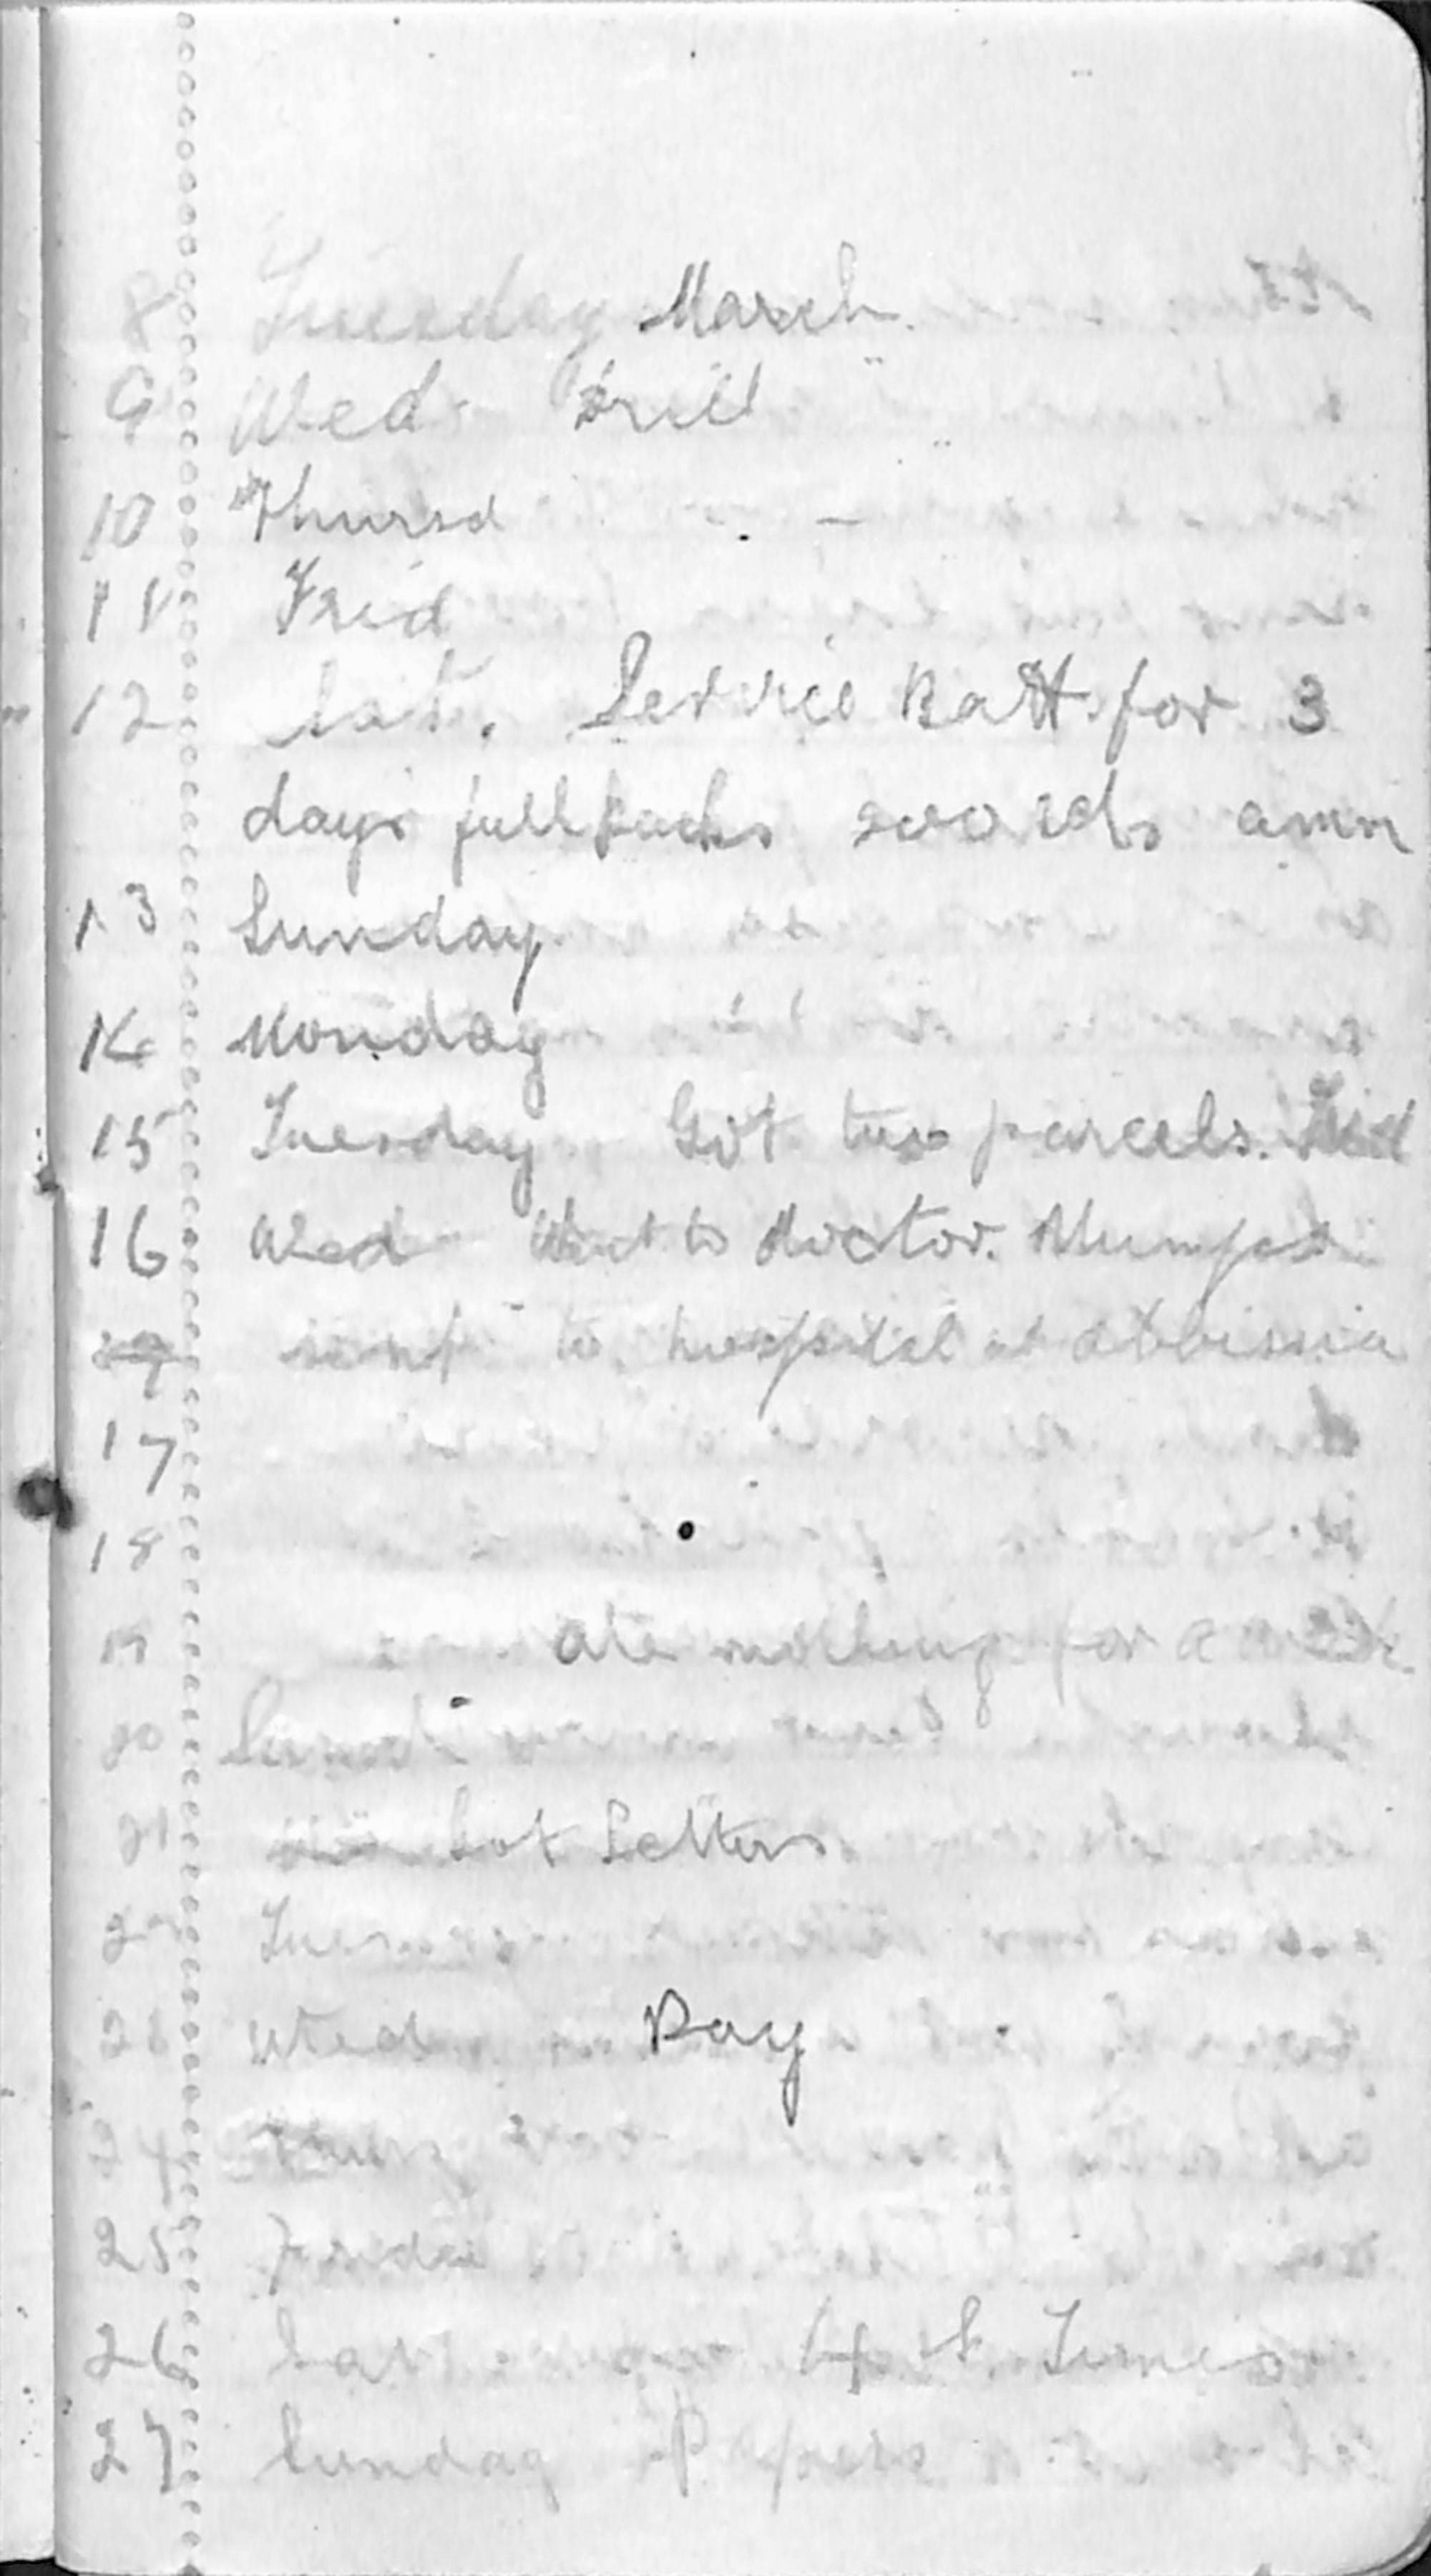 8 Tuesday March
9 Wed. Drill
10 Thursd
11 Frid
12 Sat. Service Batt for 3
days full packs swords amm
13 Sunday
14 Monday
15 Tuesday Got two parcels.
16 Wed Went to doctor. Mumps
sent to hospital at abbissia
17
18
19 ate nothing for a week
20 Sund
21 Got Letters
22 Tues
23 Wed Pay
24 Thurs
25 Frida
26 Sat 4 S. Times
27 Sunday Papers